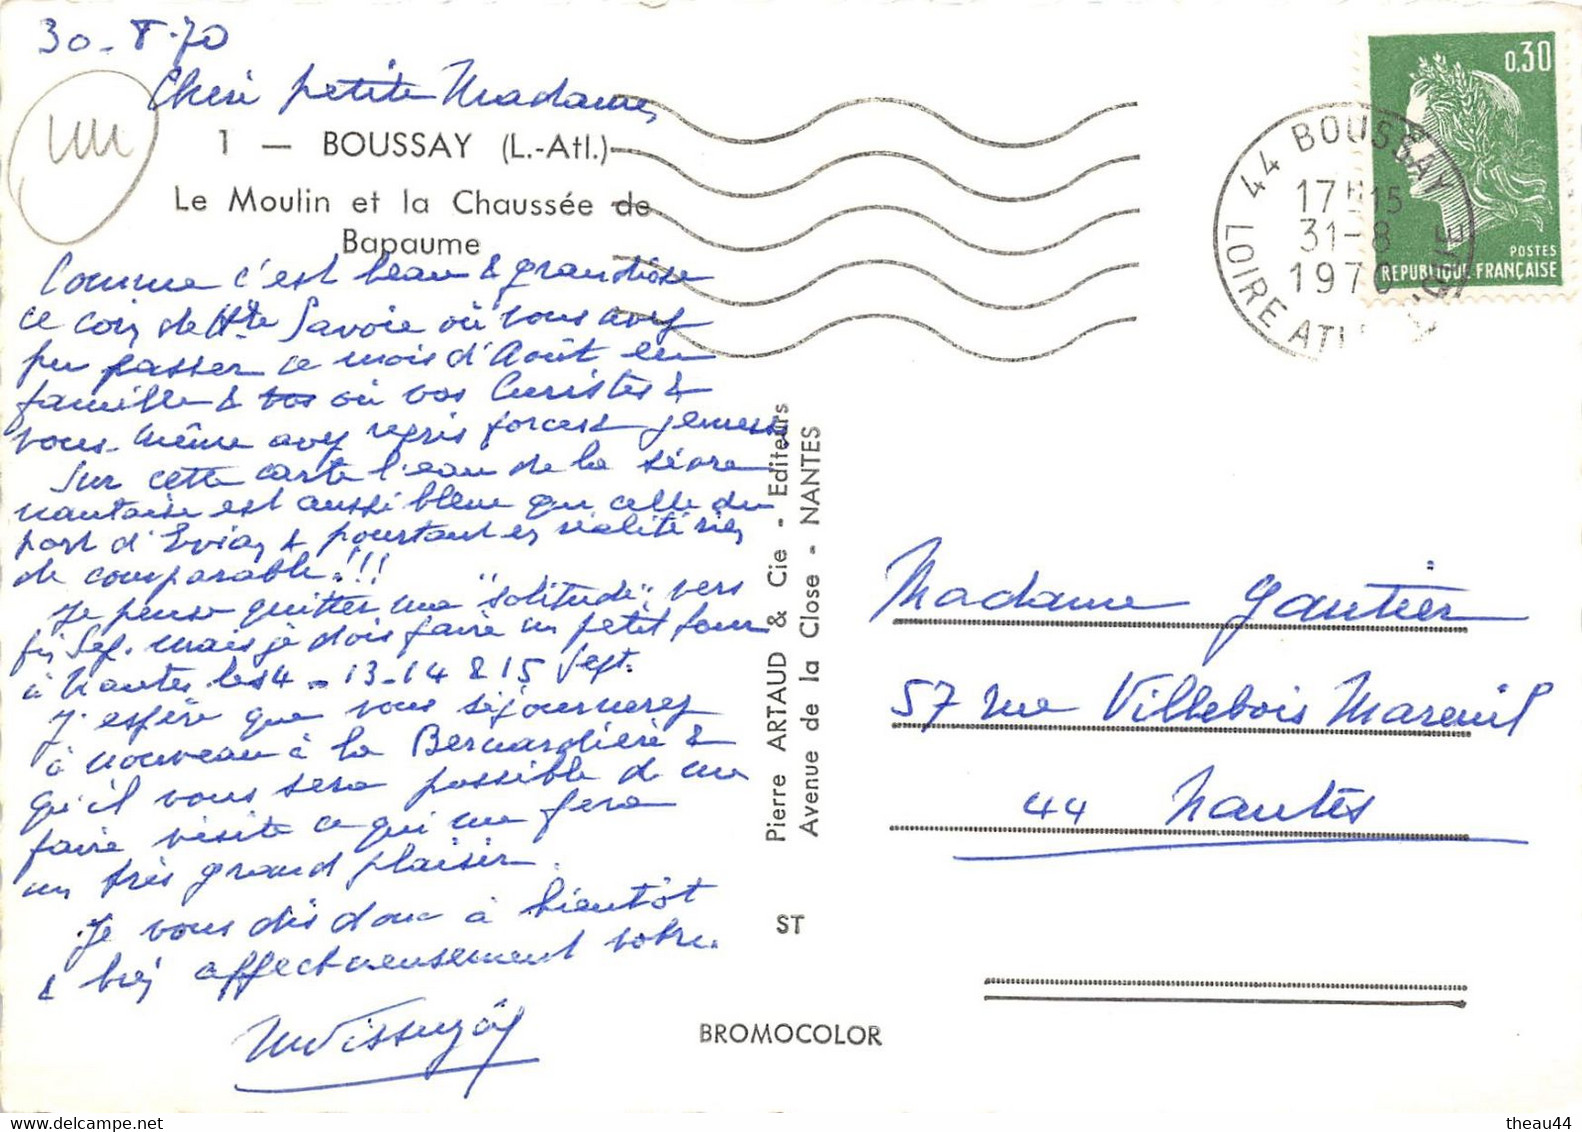 30-8-70
Chère petite Madame,
1 — BOUSSAY (L.-Atl.)
Le Moulin et la Chaussée de
Bapaume
Comme c'est beau & grandiose
ce coin de Hte Savoie où vous avez
pu passer ce mois d'Août en
famille & où vos Curistes &
vous-même avez repris forces & jeunesse
Sur cette carte l'eau de la Sèvre
nantaise est aussi bleue que celle du
port d'Evian & pourtant en réalité rien
de comparable!!!
Je pense quitter ma "solitude" vers
fin Sept. mais je dois faire un petit tour
à Nantes les 4 - 13-14 & 15 Sept.
J'espère que vous séjournerez
à nouveau à la Bernardière &
qu'il vous sera possible de me
faire visite ce qui me fera
un très grand plaisir.
Je vous dis donc à bientôt
& bien affectueusement vôtre.
Pierre ARTAUD & Cie - Editeurs
Avenue de la Close - NANTES
ST
BROMOCOLOR
0,30
POSTES
REPUBLIQUE FRANÇAISE
44 BOUSSAY
17H15
31-8
1970
LOIRE ATLANTIQUE
Madame Gautier
57 rue Villebois Mareuil
44 Nantes
theau44